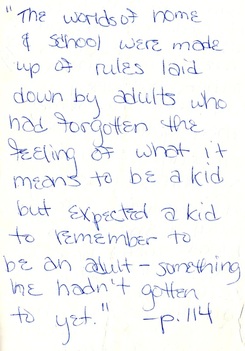 "The worlds of home
& school were made
up of rules laid
down by adults who
had forgotten the
feeling of what it
means to be a kid
but expected a kid
to remember to
be an adult - something
he hadn't gotten
to yet." -p. 114